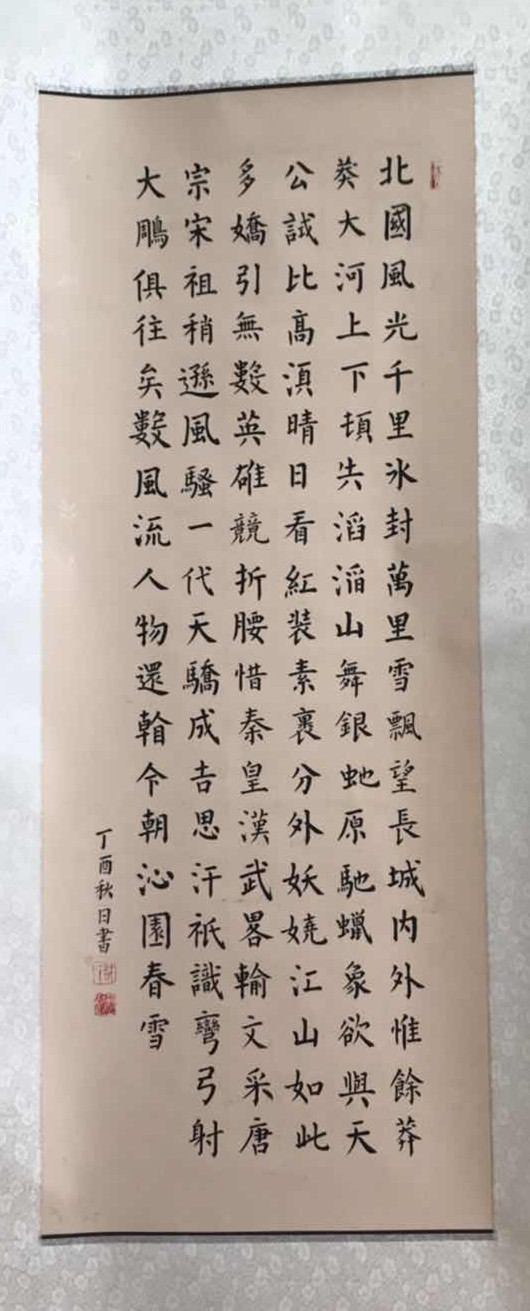 北國風光千里冰封萬里雪飄望長城内外惟餘莽
莽大河上下頓失滔滔山舞銀虵原馳蠟象欲與天
公試比高須晴日看紅装素裹分外妖嬈江山如此
多嬌引無數英雄競折腰惜秦皇漢武畧輸文采唐
宗宋祖稍遜風騷一代天驕成吉思汗祇識彎弓射
大鵰俱往矣數風流人物還看今朝沁園春雪
丁酉秋日書